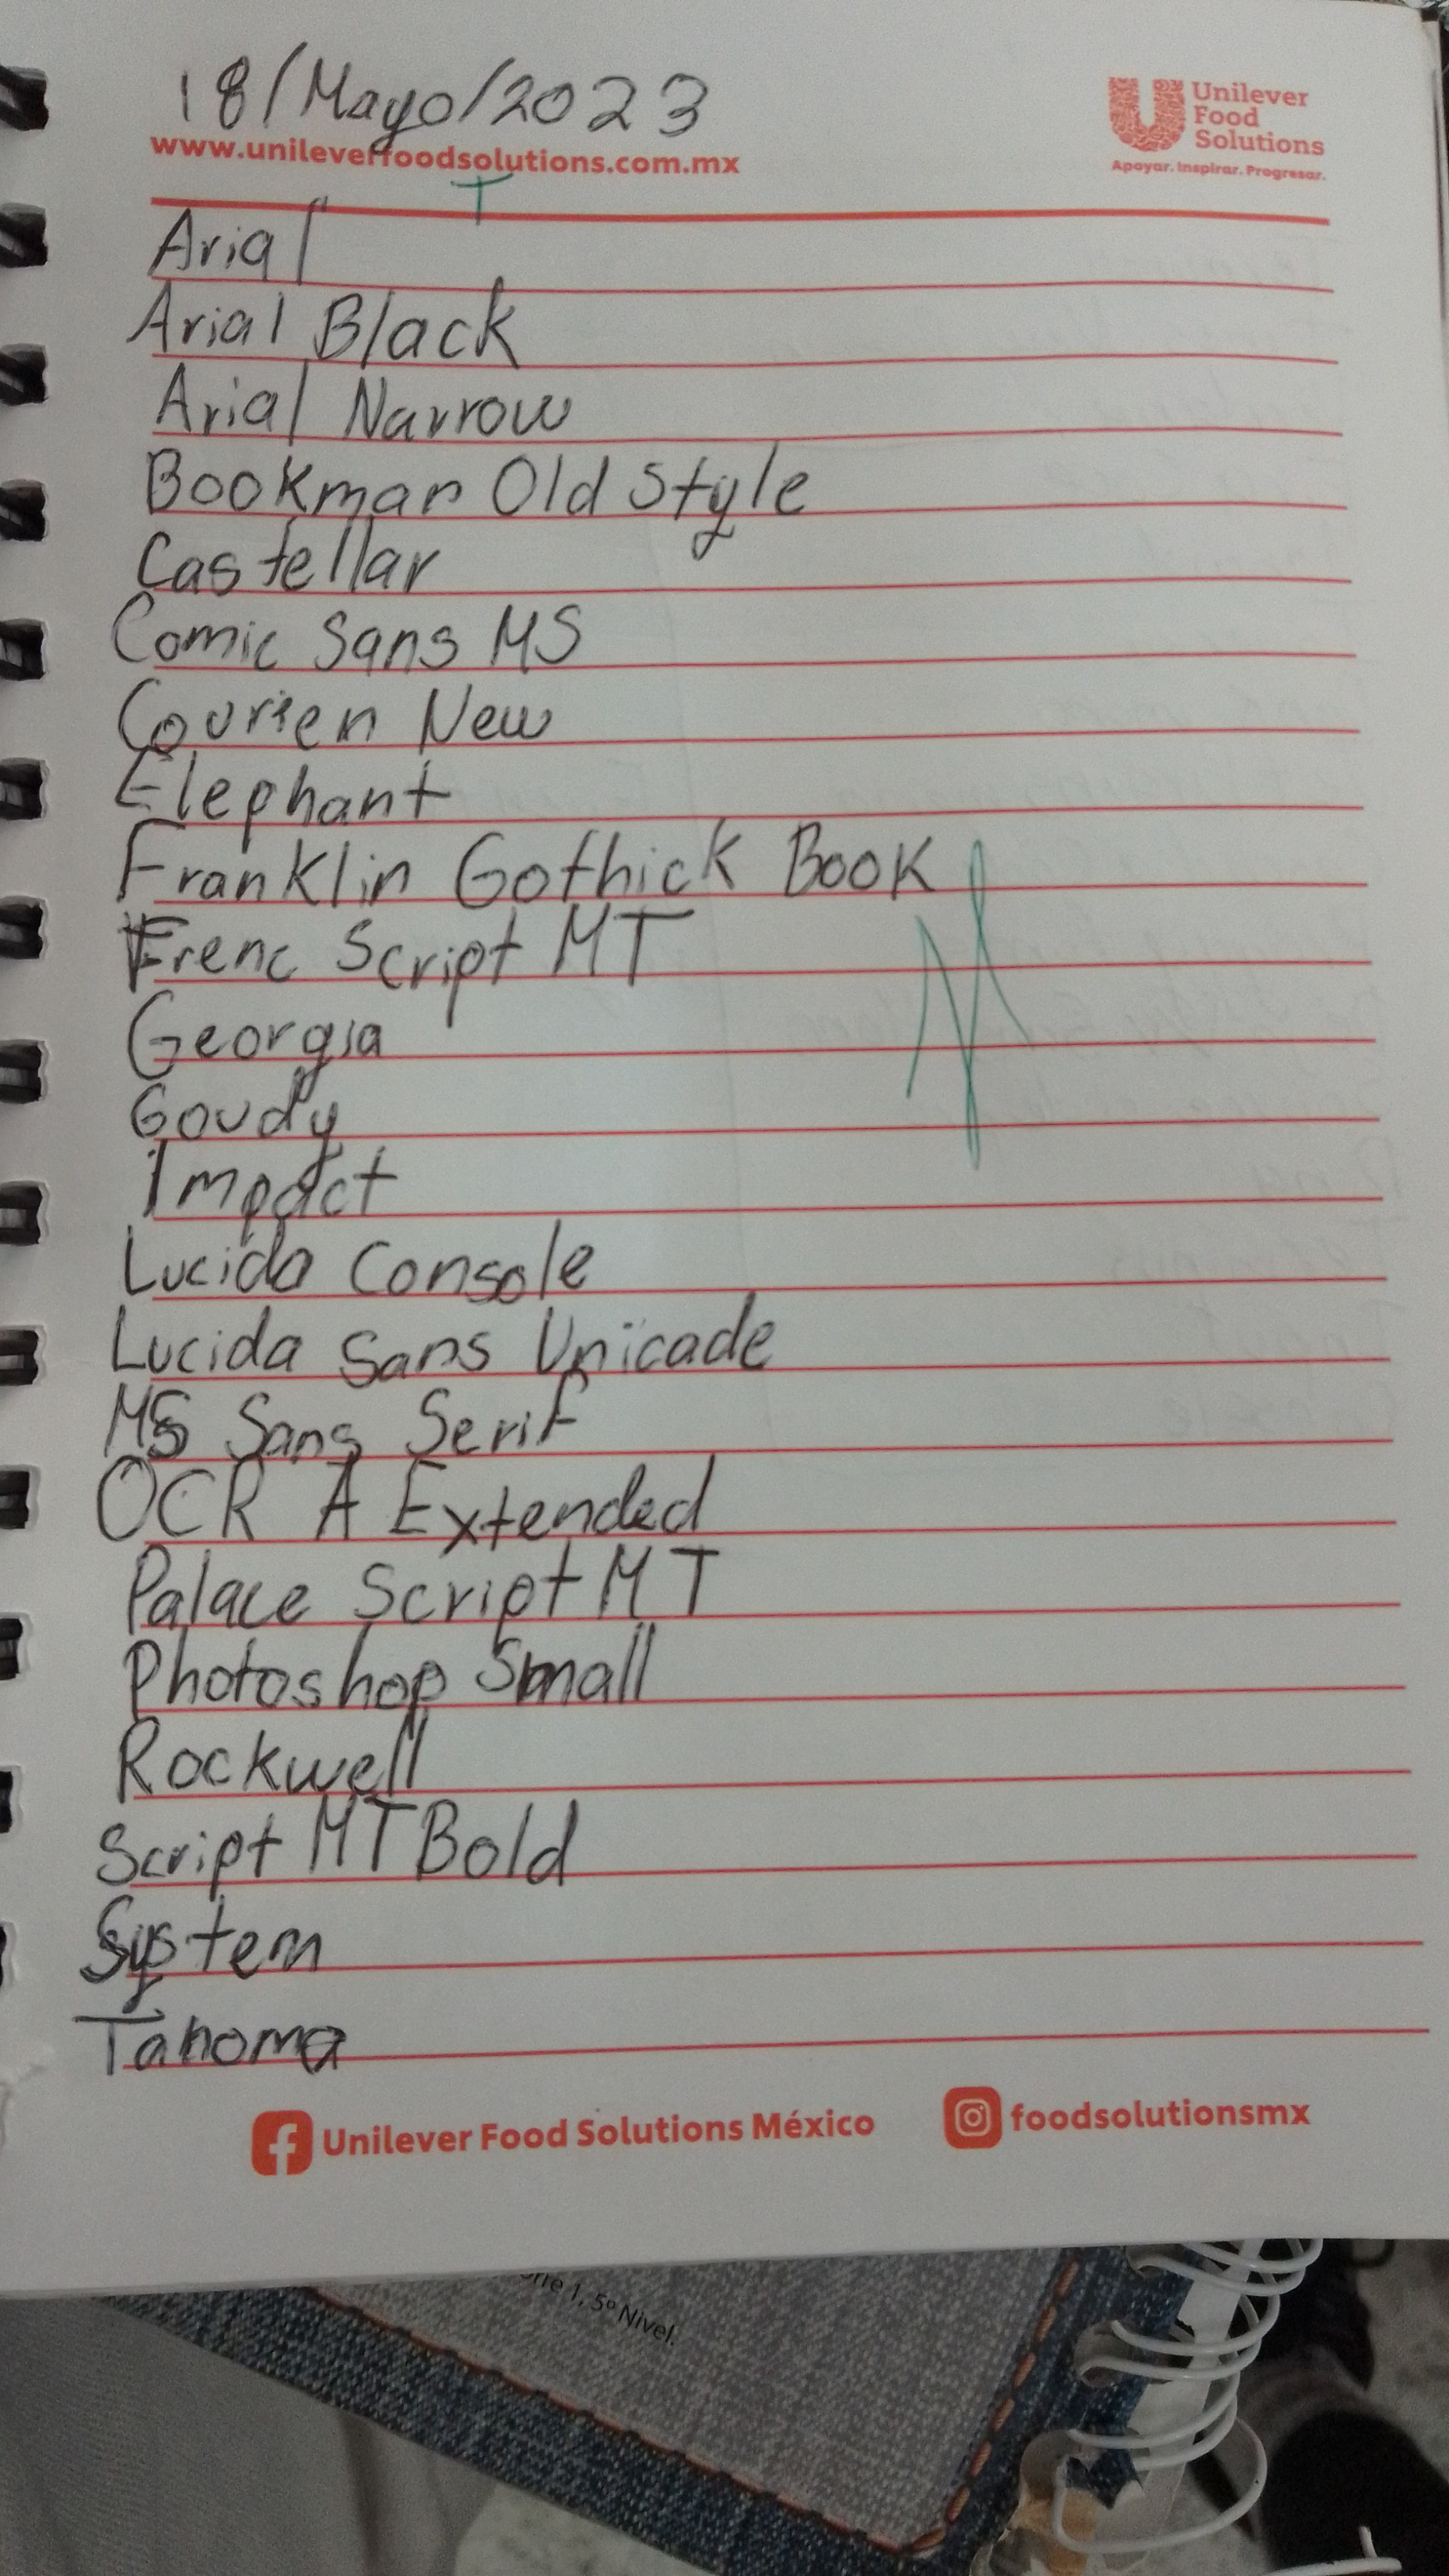 18/Mayo/2023
www.unileverfoodsolutions.com.mx
Unilever
Food
Solutions
Apoyar. Inspirar. Progresar.
T
Arial
Arial Black
Arial Narrow
Bookman Old Style
Castellar
Comic Sans MS
Courien New
Elephant
Franklin Gothick Book
Frenc Script MT
Georgia
Goudy
Impact
Lucida Console
Lucida Sans Unicade
MS Sans Serif
OCR A Extended
Palace Script MT
Photoshop Small
Rockwell
Script MT Bold
System
Tahoma
Unilever Food Solutions México
foodsolutionsmx
1, 5º Nivel.